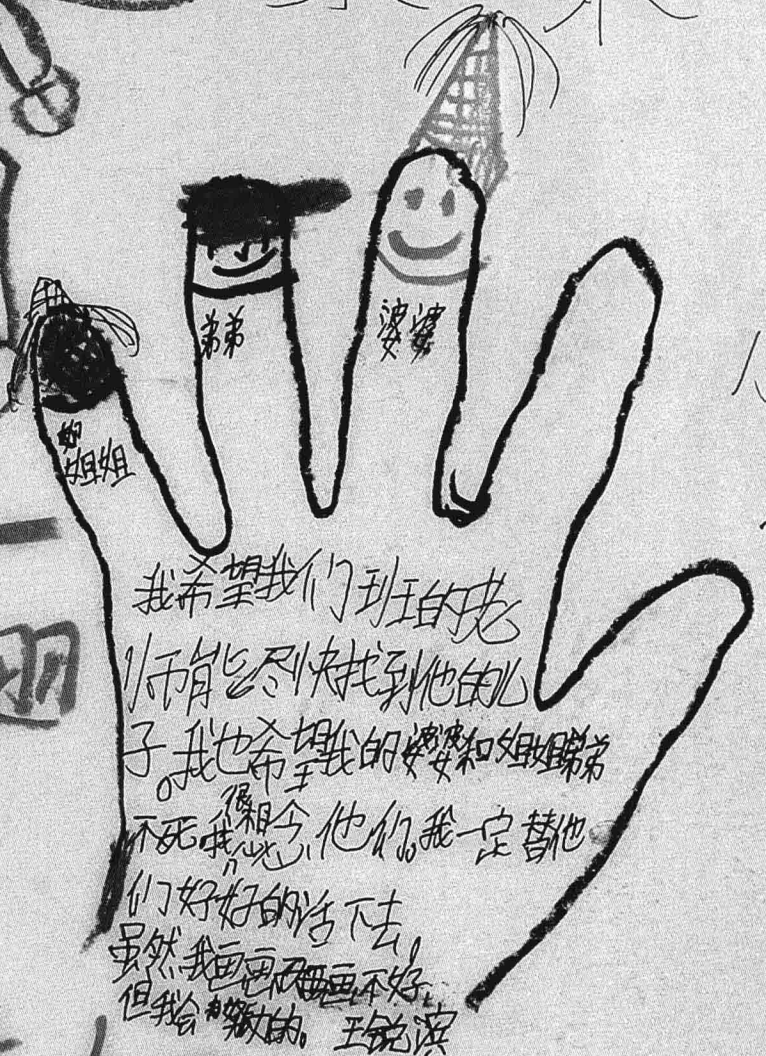 弟弟
婆婆
姐姐
我希望我们班的老
师能尽快找到他的儿
子。我也希望我的婆婆和姐姐弟弟
不死。我很想念他们。我一定替他
们好好的活下去。
虽然我画画画不好，
但我会努力的。 王锐滨
翅